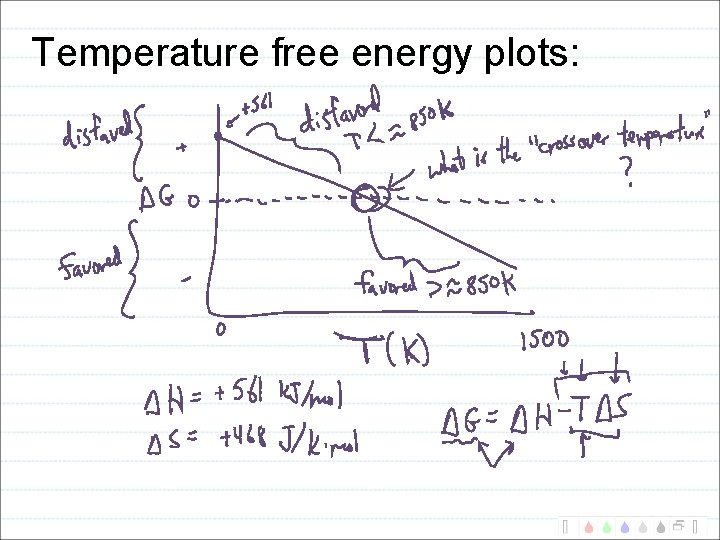 Temperature free energy plots:
+561
disfavored
T < ≈ 850K
disfaved
+
what is the "crossover temperature"
?
ΔG 0
favored
-
favored > ≈ 850K
0
T(K)
1500
ΔH = +561 kJ/mol
ΔS = +468 J/K·mol
ΔG = ΔH - TΔS